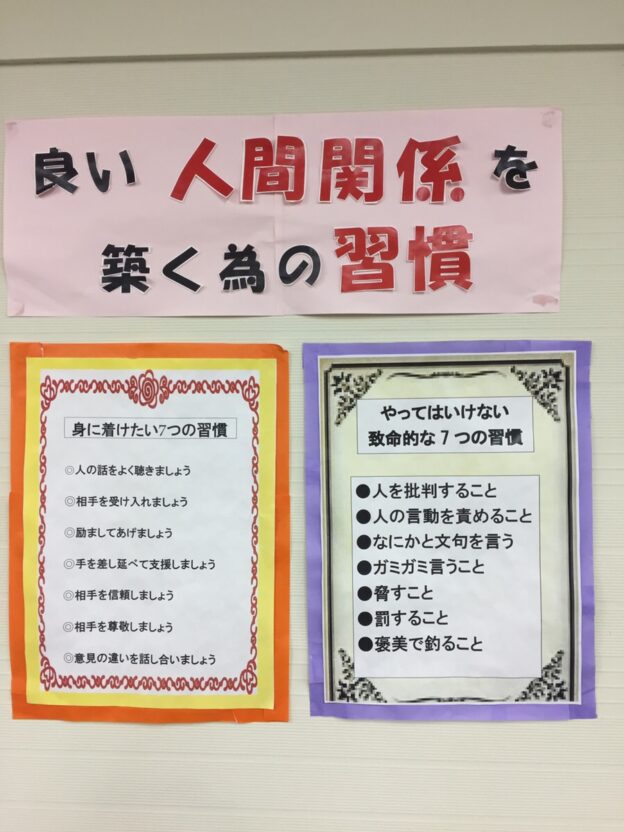 良い 人間関係 を
築く為の習慣
身に着けたい7つの習慣
◎人の話をよく聴きましょう
◎相手を受け入れましょう
◎励ましてあげましょう
◎手を差し延べて支援しましょう
◎相手を信頼しましょう
◎相手を尊敬しましょう
◎意見の違いを話し合いましょう
やってはいけない
致命的な７つの習慣
●人を批判すること
●人の言動を責めること
●なにかと文句を言う
●ガミガミ言うこと
●脅すこと
●罰すること
●褒美で釣ること